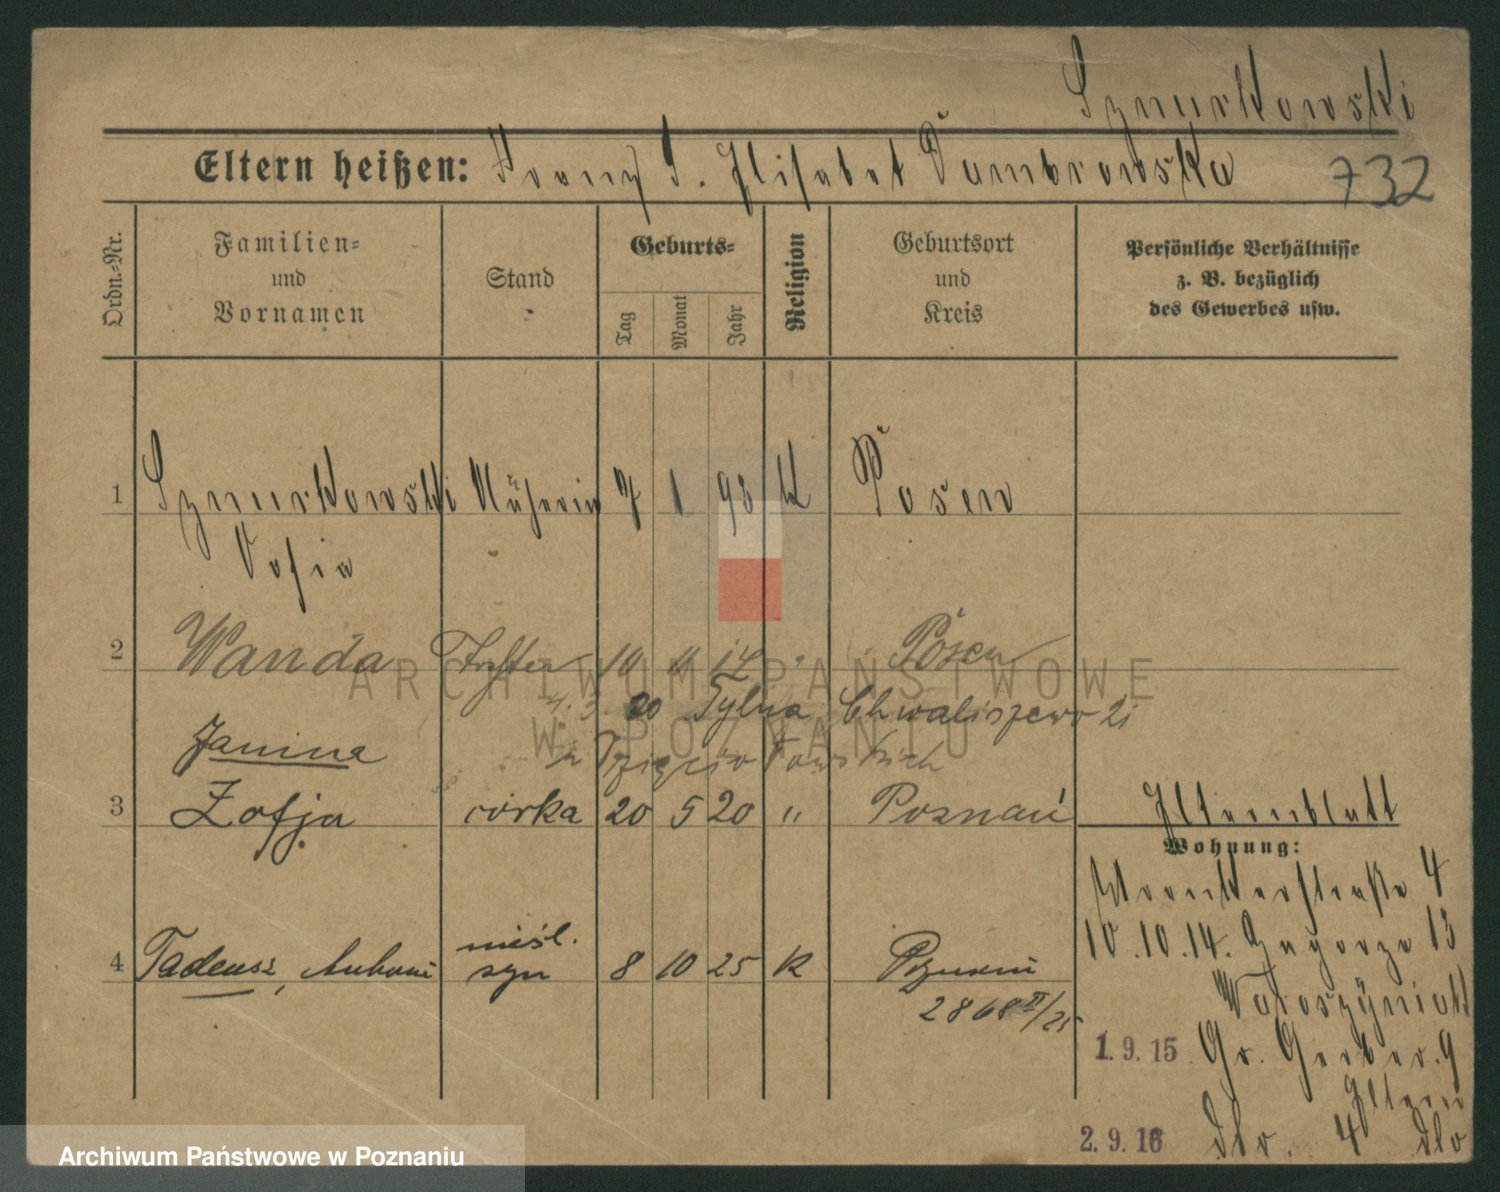 Szmurkowski
Eltern heißen: Franz S. Elisabet Dombrowska 732
Ordn.-Nr.
Familien-
und
Vornamen
Stand
Geburts-
Tag
Monat
Jahr
Religion
Geburtsort
und
Kreis
Persönliche Verhältnisse
z. B. bezüglich
des Gewerbes usw.
1 Szmurkowski Näherin 7 1 93 k Posen
Sofia
2 Wanda Tochter 10 11 14 " Posen
20 Tylna Chwaliszewo 21
Janina
3 Zofja córka 20 5 20 " Poznań
Elternblatt
Wohnung:
4
10.10.14. Zagorze 13
4 Tadeusz, Antoni nieśl.
syn 8 10 25 k Poznań
2868 II/25
1.9.15 Gr. Gerber. 9
Eltern
2.9.16 dto. 4 dto
ARCHIWUM PAŃSTWOWE
W POZNANIU
Archiwum Państwowe w Poznaniu